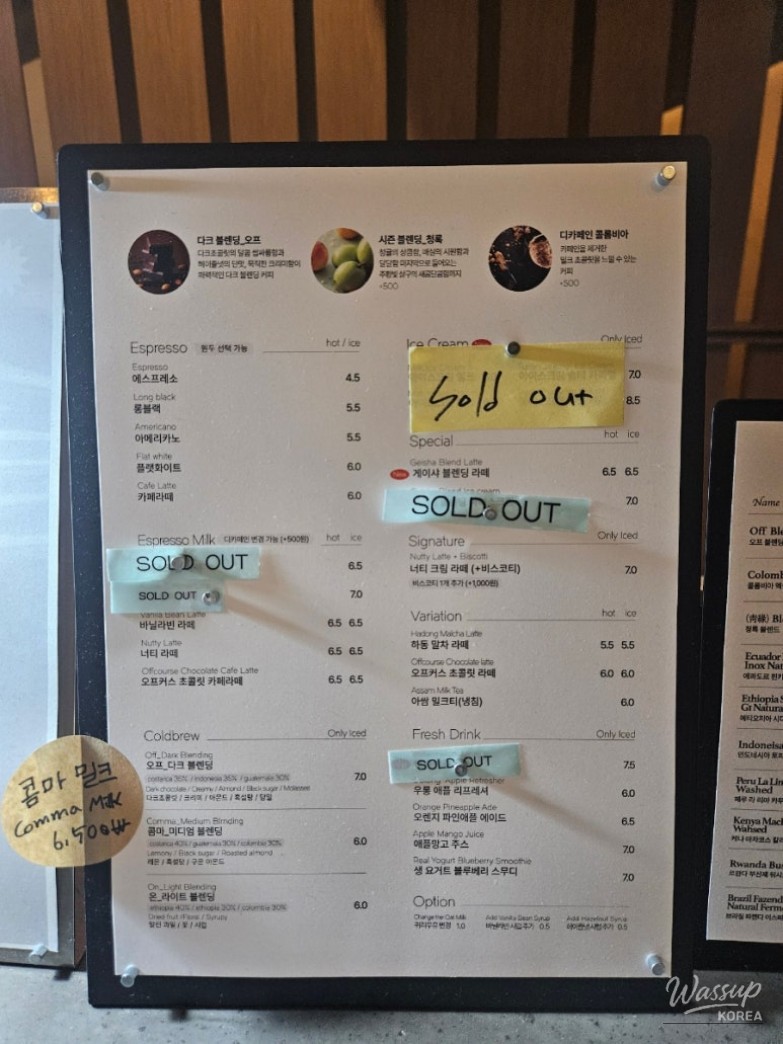 다크 블렌딩_오프
다크초콜릿의 달콤 쌉싸름함과
헤이즐넛의 단맛, 묵직한 크리미함이
매력적인 다크 블렌딩 커피
시즌 블렌딩_청록
+500
디카페인 콜롬비아
카페인을 제거한
밀크 초콜릿을 느낄 수 있는
커피
+500
Espresso 원두 선택 가능 hot / ice
Espresso
에스프레소 4.5
Long black
롱블랙 5.5
Americano
아메리카노 5.5
Flat white
플랫화이트 6.0
Cafe Latte
카페라떼 6.0
Espresso Milk 디카페인 변경 가능 (+500원) hot ice
SOLD OUT 6.5
SOLD OUT 7.0
Vanilla Bean Latte
바닐라빈 라떼 6.5 6.5
Nutty Latte
너티 라떼 6.5 6.5
Offcourse Chocolate Cafe Latte
오프커스 초콜릿 카페라떼 6.5 6.5
Coldbrew Only Iced
Off_Dark Blending
오프_다크 블렌딩 7.0
Dark chocolate / Creamy / Almond / Black sugar / Molasses
다크초콜릿 / 크리미 / 아몬드 / 흑설탕 / 당밀
Comma_Medium Blending
콤마_미디엄 블렌딩 6.0
Lemony / Black sugar / Roasted almond
레몬 / 흑설탕 / 구운 아몬드
On_Light Blending
온_라이트 블렌딩 6.0
Dried fruit / Floral / Syrups
말린 과일 / 꽃 / 시럽
콤마 밀크
Comma Milk
6,500₩
Ice Cream Only Iced
7.0
Sold out 8.5
Special hot ice
Geisha Blend Latte
게이샤 블렌딩 라떼 6.5 6.5
SOLD OUT 7.0
Signature Only Iced
Nutty Latte + Biscotti
너티 크림 라떼 (+비스코티) 7.0
비스코티 1개 추가 (+1,000원)
Variation hot ice
Hadong Malcha Latte
하동 말차 라떼 5.5 5.5
Offcourse Chocolate latte
오프커스 초콜릿 라떼 6.0 6.0
Assam Milk Tea
아쌈 밀크티(냉침) 6.0
Fresh Drink Only Iced
SOLD OUT 7.5
Apple Refresher
우롱 애플 리프레셔 6.0
Orange Pineapple Ade
오렌지 파인애플 에이드 6.5
Apple Mango Juice
애플망고 주스 7.0
Real Yogurt Blueberry Smoothie
생 요거트 블루베리 스무디 7.0
Option
Change me Oat Milk Add Vanilla Bean Syrup Add Hazelnut Syrup
귀리우유 변경 1.0 바닐라빈 시럽 추가 0.5 헤이즐넛 시럽 추가 0.5
Name
Off Ble
오프 블렌딩
Colomb
Ecuador
Inox Nat
Ethiopia S
G1 Natura
Indoneisa
Peru La Lim
Washed
Kenya Mach
Wahsed
Rwanda Bu
Brazil Fazend
Natural Ferme
Wassup
KOREA